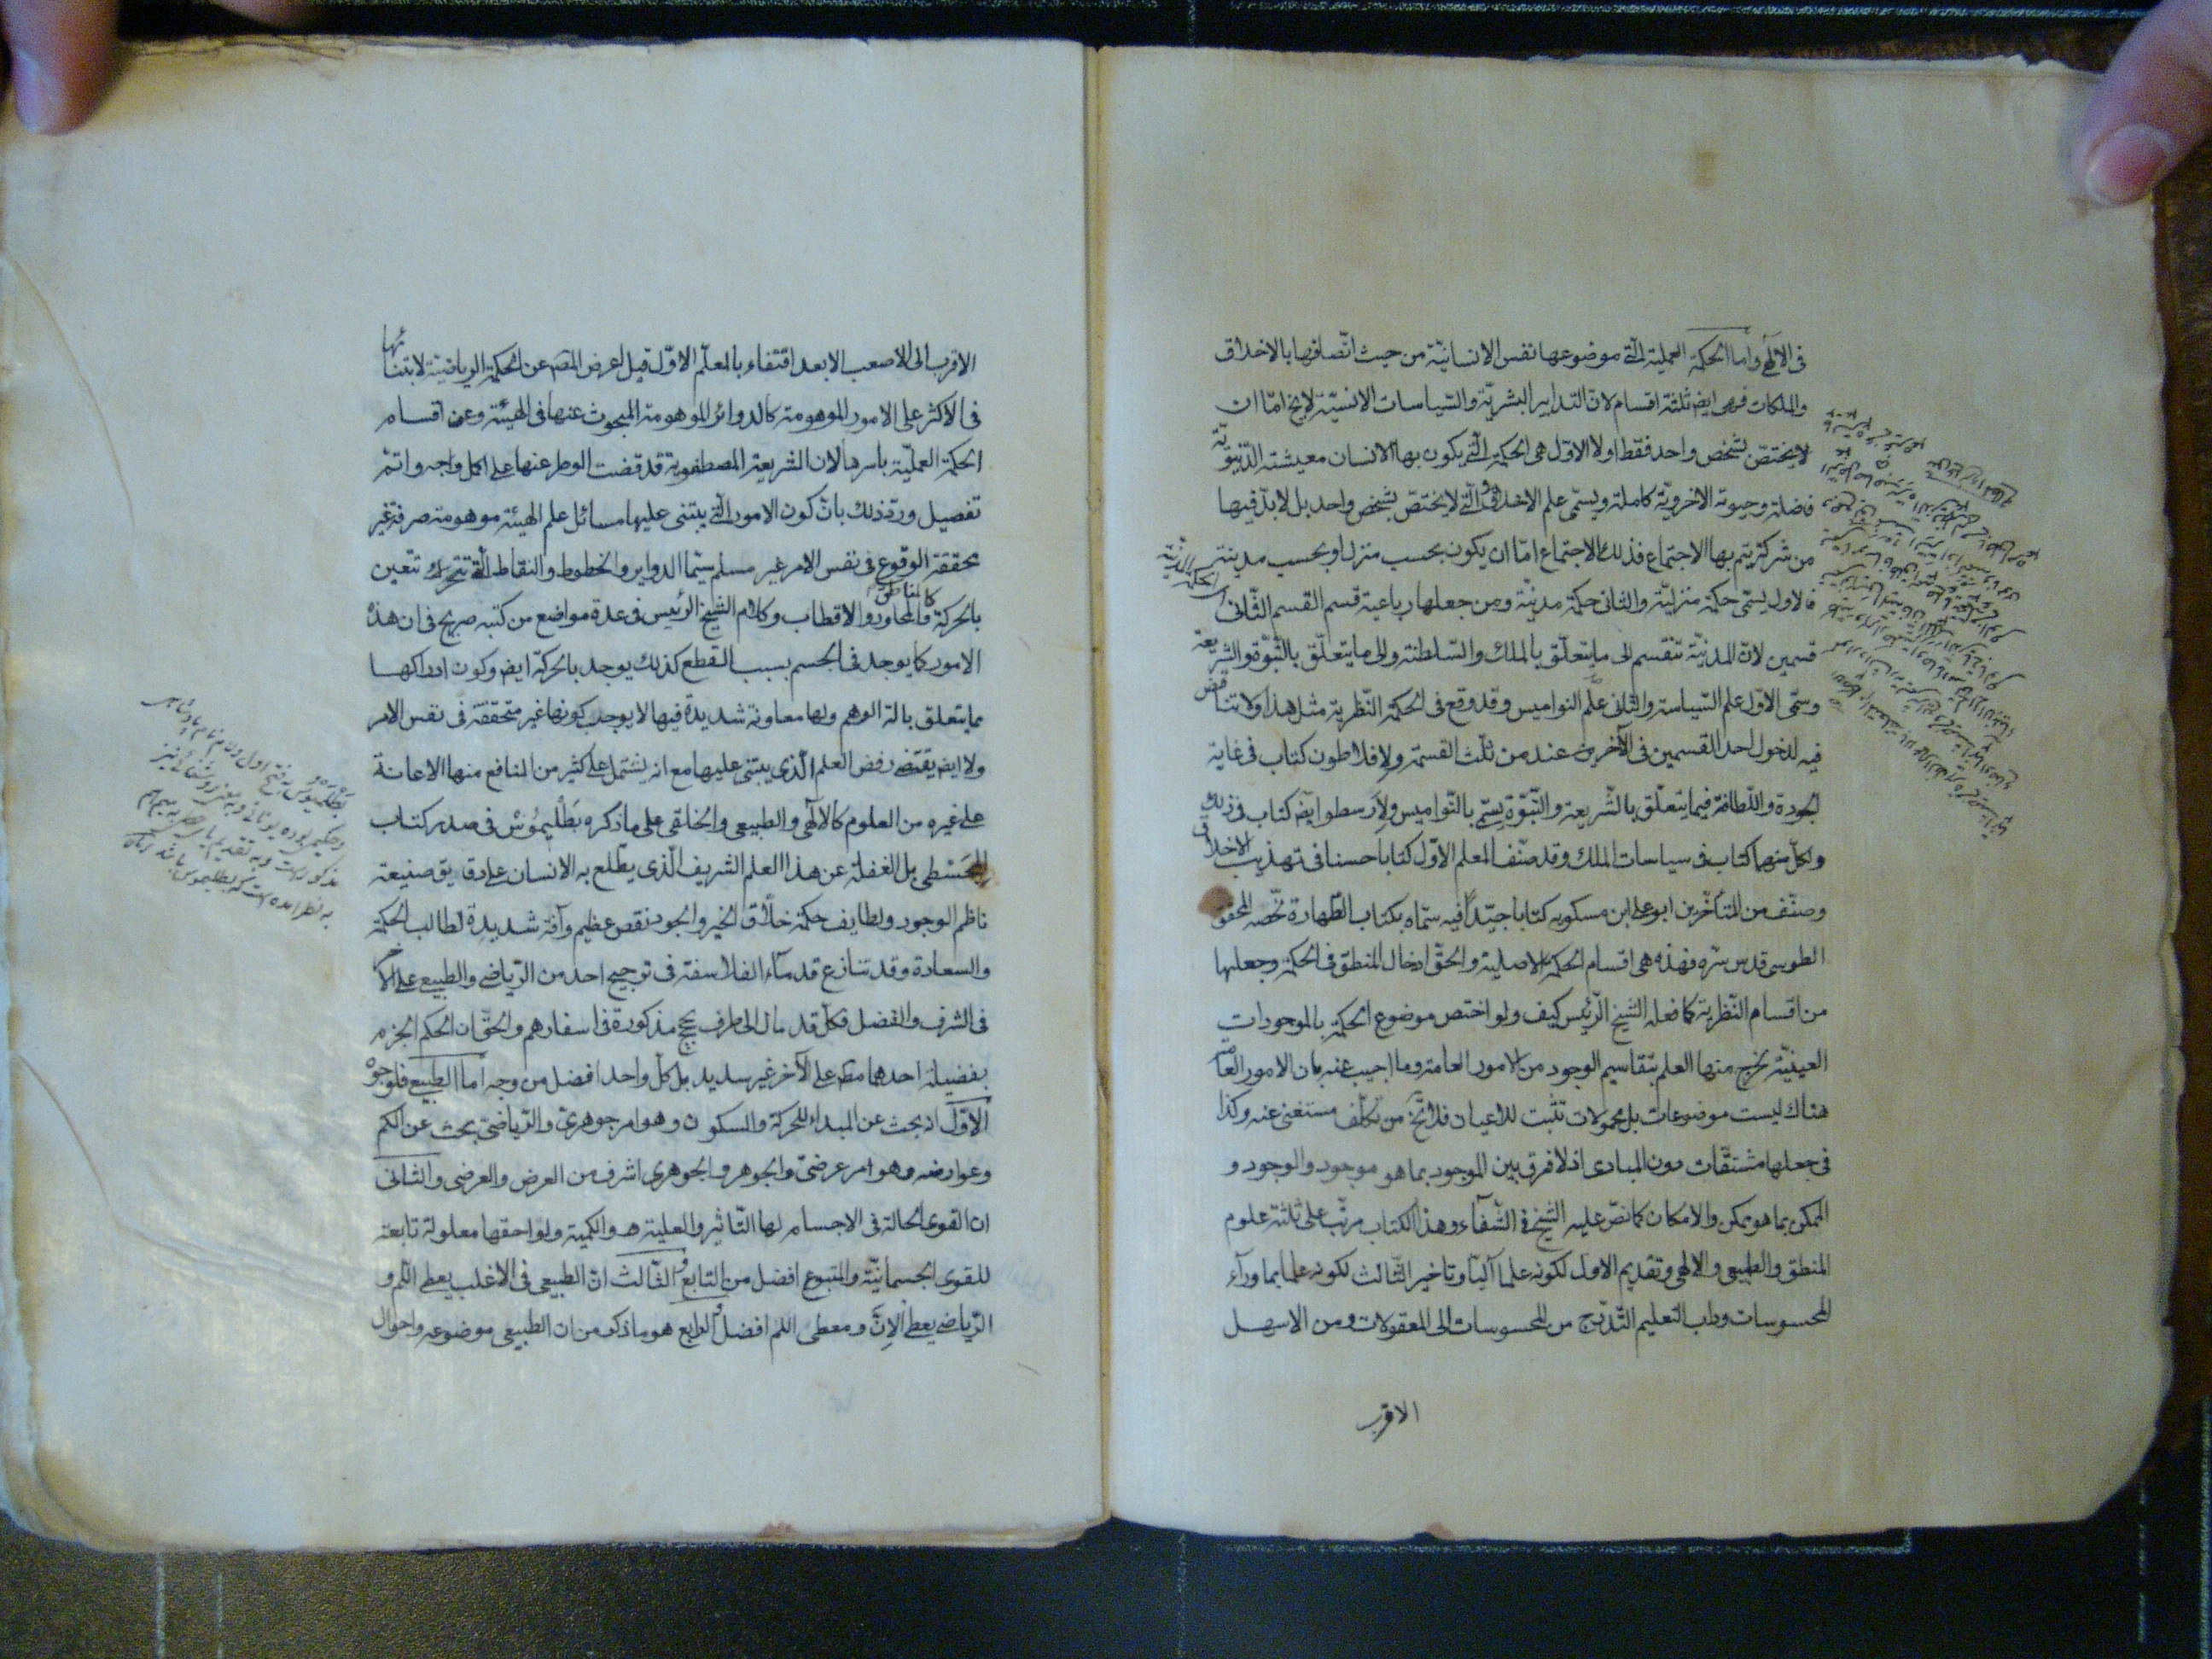 فى الالهى واما الحكمة العملية التى موضوعها نفس الانسانيّة من حيث اتّصافها بالاخلاق
والملكات فهى ايض ثلثة اقسام لانّ التدابير البشريّة والسّياسات الانسيّة لا يخ امّا ان
لا يختصّ بشخص واحد فقط اولا الاوّل هى الحكمة الّتى يكون بها الانسان معيشته الدّنيويّة
فاضلة وحيوته الاخرويّة كاملة ويسمّى علم الاخلاق والّتى لا يختصّ بشخص واحد بل لا بدّ فيها
من شركة يتم بها الاجتماع فذلك الاجتماع امّا ان يكون بحسب منزل او بحسب مدينة
فالاول يسمّى حكمة منزليّة والثانى حكمة مدنيّة ومن جعلها رباعية قسم القسم الثّانى
قسمين لانّ المدنيّة تنقسم الى ما يتعلّق بالملك والسّلطنة والى ما يتعلّق بالنّبوّة والشريعة
وسمّى الاوّل علم السّياسة والثانى علم النواميس وقد وقع فى الحكمة النّظرية مثل هذا ولا تناقض
فيه لدخول احد القسمين فى الآخرين عند من ثلّث القسمة ولافلاطون كتاب فى غاية
الجودة واللّطافة فيما يتعلّق بالشّريعة والنّبوّة يسمّى بالنّواميس ولارسطو ايض كتاب فى ذلك
ولكلّ منهما كتاب فى سياسات الملك وقد صنّف المعلم الاوّل كتابا حسنا فى تهذيب الاخلاق
وصنّف من المتأخّرين ابو على ابن مسكويه كتابا جيّداً فيه سمّاه بكتاب الطّهارة لخّصه المحقق
الطوسى قدس سّره فهذه هى اقسام الحكمة الاصلية والحقّ ادخال المنطق فى الحكمة وجعلها
من اقسام النّظرية كما فعله الشيخ الرّئيس كيف ولو اختص موضوع الحكمة بالموجودات
العينيّة يخرج منها العلم بتقاسيم الوجود من الامور العامة وما اجيب عنه بان الامور العامّة
هناك ليست موضوعات بل محمولات تثبت للاعيان فلا يخّ من تكلّف مستغنى عنه وكذا
فى جعلها مشتقّات دون المبادى اذ لا فرق بين الموجود بما هو موجود والوجود و
الممكن بما هو ممكن والامكان كما نصّ عليه الشيخ فى الشّفآء وهذا الكتاب مرتّب على ثلثة علوم
المنطق والطبيعى والالهى وتقديم الاول لكونه علما آليّا وتاخير الثّالث لكونه علما بما ورآء
المحسوسات وداب التعليم التّدرّج من المحسوسات الى المعقولات ومن الاسهل
الاقرب
الاقرب الى الاصعب الابعد اقتفاء بالمعلّم الاوّل قيل اعرض المصّ عن الحكمة الرياضية لابتنائها
فى الاكثر على الامور الموهومة كالدوائر الموهومة المبحوث عنها فى الهيئة وعن اقسام
الحكمة العمليّة باسرها لان الشريعة المصطفوية قد قضت الوطر عنها على اكمل واجه واتمّ
تفصيل وردّ ذلك بانّ كون الامور الّتى يبتنى عليها مسائل علم الهيئة موهومة صرفة غير
محققة الوقوع فى نفس الامر غير مسلم سيّما الدواير والخطوط والنقاط الّتى تتحرك تتعين
بالحركة كالمناطق والمحاور والاقطاب وكلام الشيخ الرئيس فى عدة مواضع من كتبه صريح فى ان هذه
الامور كما يوجد فى الجسم بسبب القطع كذلك يوجد بالحركة ايض وكون ادراكها
مما يتعلق بالة الوهم ولها معاونة شديدة فيها لا يوجب كونها غير متحققة فى نفس الامر
ولا ايض يقتضى رفض العلم الّذى يبتنى عليها مع انه يشتمل على كثير من المنافع منها الاعانة
على غيره من العلوم كالآلهى والطبيعى والخلقى على ما ذكره بَطْليمُوسْ فى صدر كتاب
المجَسْطى بل الغفلة عن هذا العلم الشريف الّذى يطّلع به الانسان على دقايق صنيعة
ناظم الوجود ولطايف حكمة خلّاق الخير والجود نقص عظيم وآفة شديدة لطالب الحكمة
والسعادة وقد تنازع قدمآء الفلاسفة فى ترجيح احد من الرّياضى والطبيعى على الآخر
فى الشرف والفضل فكلّ قد مال الى طرف بحجج مذكورة فى اسفارهم والحقّ ان الحكم الجزم
بفضيلة احدهما مطّ على الآخر غير سديد بل كلّ واحد افضل من وجه امّا الطبيعى فلوجوه
الاوّل انه بحث عن المبداء للحركة والسكون وهو امر جوهرىّ والرّياضى بحث عن الكم
وعوارضه وهو امر عرضىّ والجوهر والجوهرى اشرف من العرض والعرضى والثانى
ان القوى الحالة فى الاجسام لها التّاثير والعلية والكمية ولواحقها معلولة تابعة
للقوى الجسمانيّة والمتبوع افضل من التابع والثّالث انّ الطبيعى فى الاغلب يعطى اللّم و
الرّياضى يعطى الانّ ومعطى اللم افضل والرابع هو ما ذكر من ان الطبيعى موضوعه واحوال